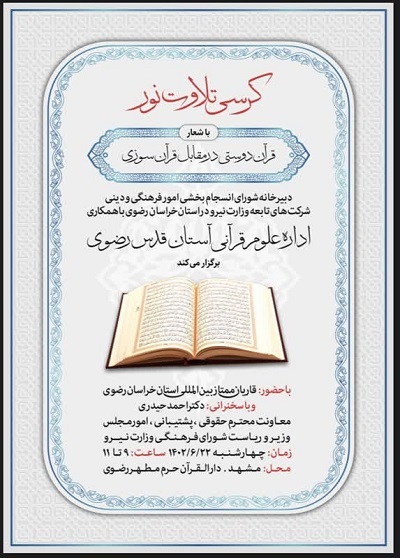 کرسی تلاوت نور
با شعار
قرآن دوستی در مقابل قرآن سوزی
دبیرخانه شورای انسجام بخشی امور فرهنگی و دینی
شرکت های تابعه وزارت نیرو در استان خراسان رضوی با همکاری
اداره علوم قرآنی آستان قدس رضوی
برگزار می کند
با حضور: قاریان ممتاز بین المللی استان خراسان رضوی
و با سخنرانی: دکتر احمد حیدری
معاونت محترم حقوقی ، پشتیبانی ، امور مجلس
وزیر و ریاست شورای فرهنگی وزارت نیرو
زمان: چهارشنبه ۱۴۰۲/۶/۲۲ ساعت: ۹ تا ۱۱
محل: مشهد . دارالقرآن حرم مطهر رضوی